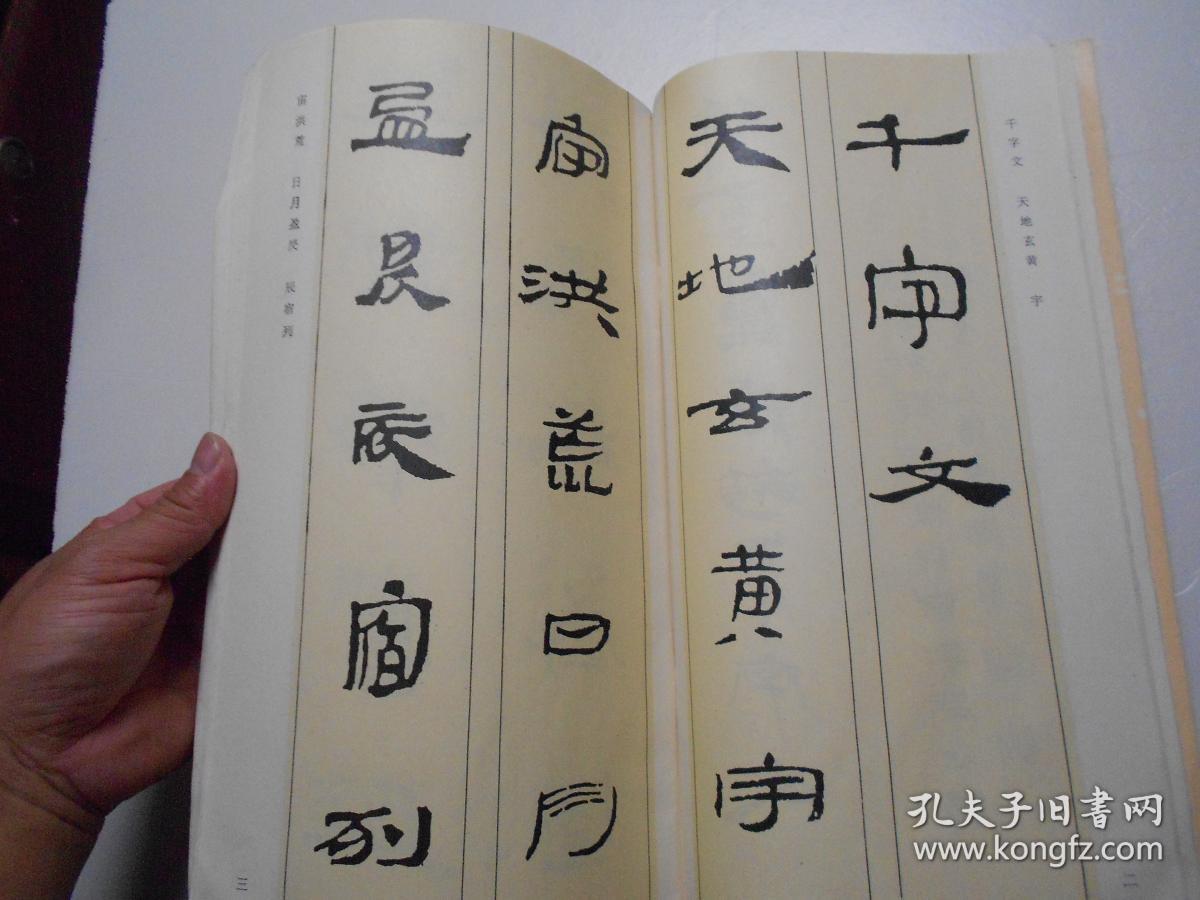 千字文 天地玄黄 宇
千字文
天地玄黄宇
二
宙洪荒日月
盈昃辰宿列
宙洪荒 日月盈昃 辰宿列
三
孔夫子旧書网
www.kongfz.com